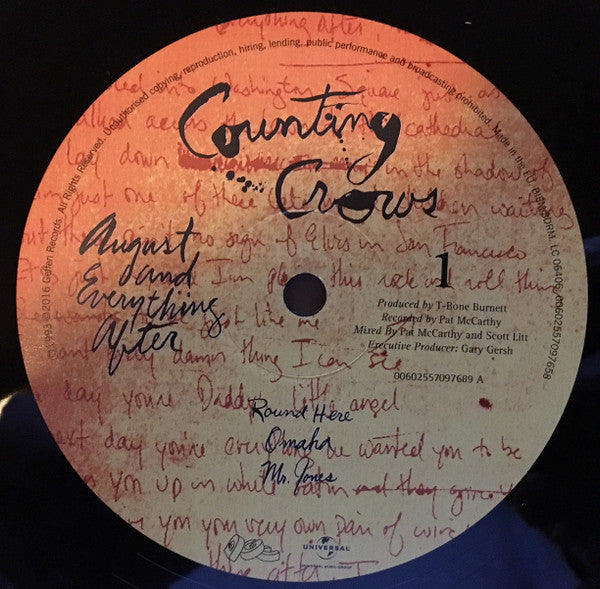 Everything After,
Unauthorised copying, reproduction, hiring, lending, public performance and broadcasting prohibited. Made in the EU.
LC 06406 00602557097658
1993 ©2016 Geffen Records. All Rights Reserved.
Washington Square just as
walked across the cathedral
Counting
Crows
lay down in the shadow of
just one of these waiting
sign of Elvis in San Francisco
this rock and roll thing
August
and
Everything
After
1
Produced by T-Bone Burnett
Recorded by Pat McCarthy
Mixed By Pat McCarthy and Scott Litt
Executive Producer: Gary Gersh
00602557097689 A
just like me
damn thing I can see
day you're Daddy's little angel
Round Here
Omaha
Mr. Jones
next day you're everything he wanted you to be
you up in white satin and they
you your very own pair of
after, I
UNIVERSAL
UNIVERSAL MUSIC GROUP